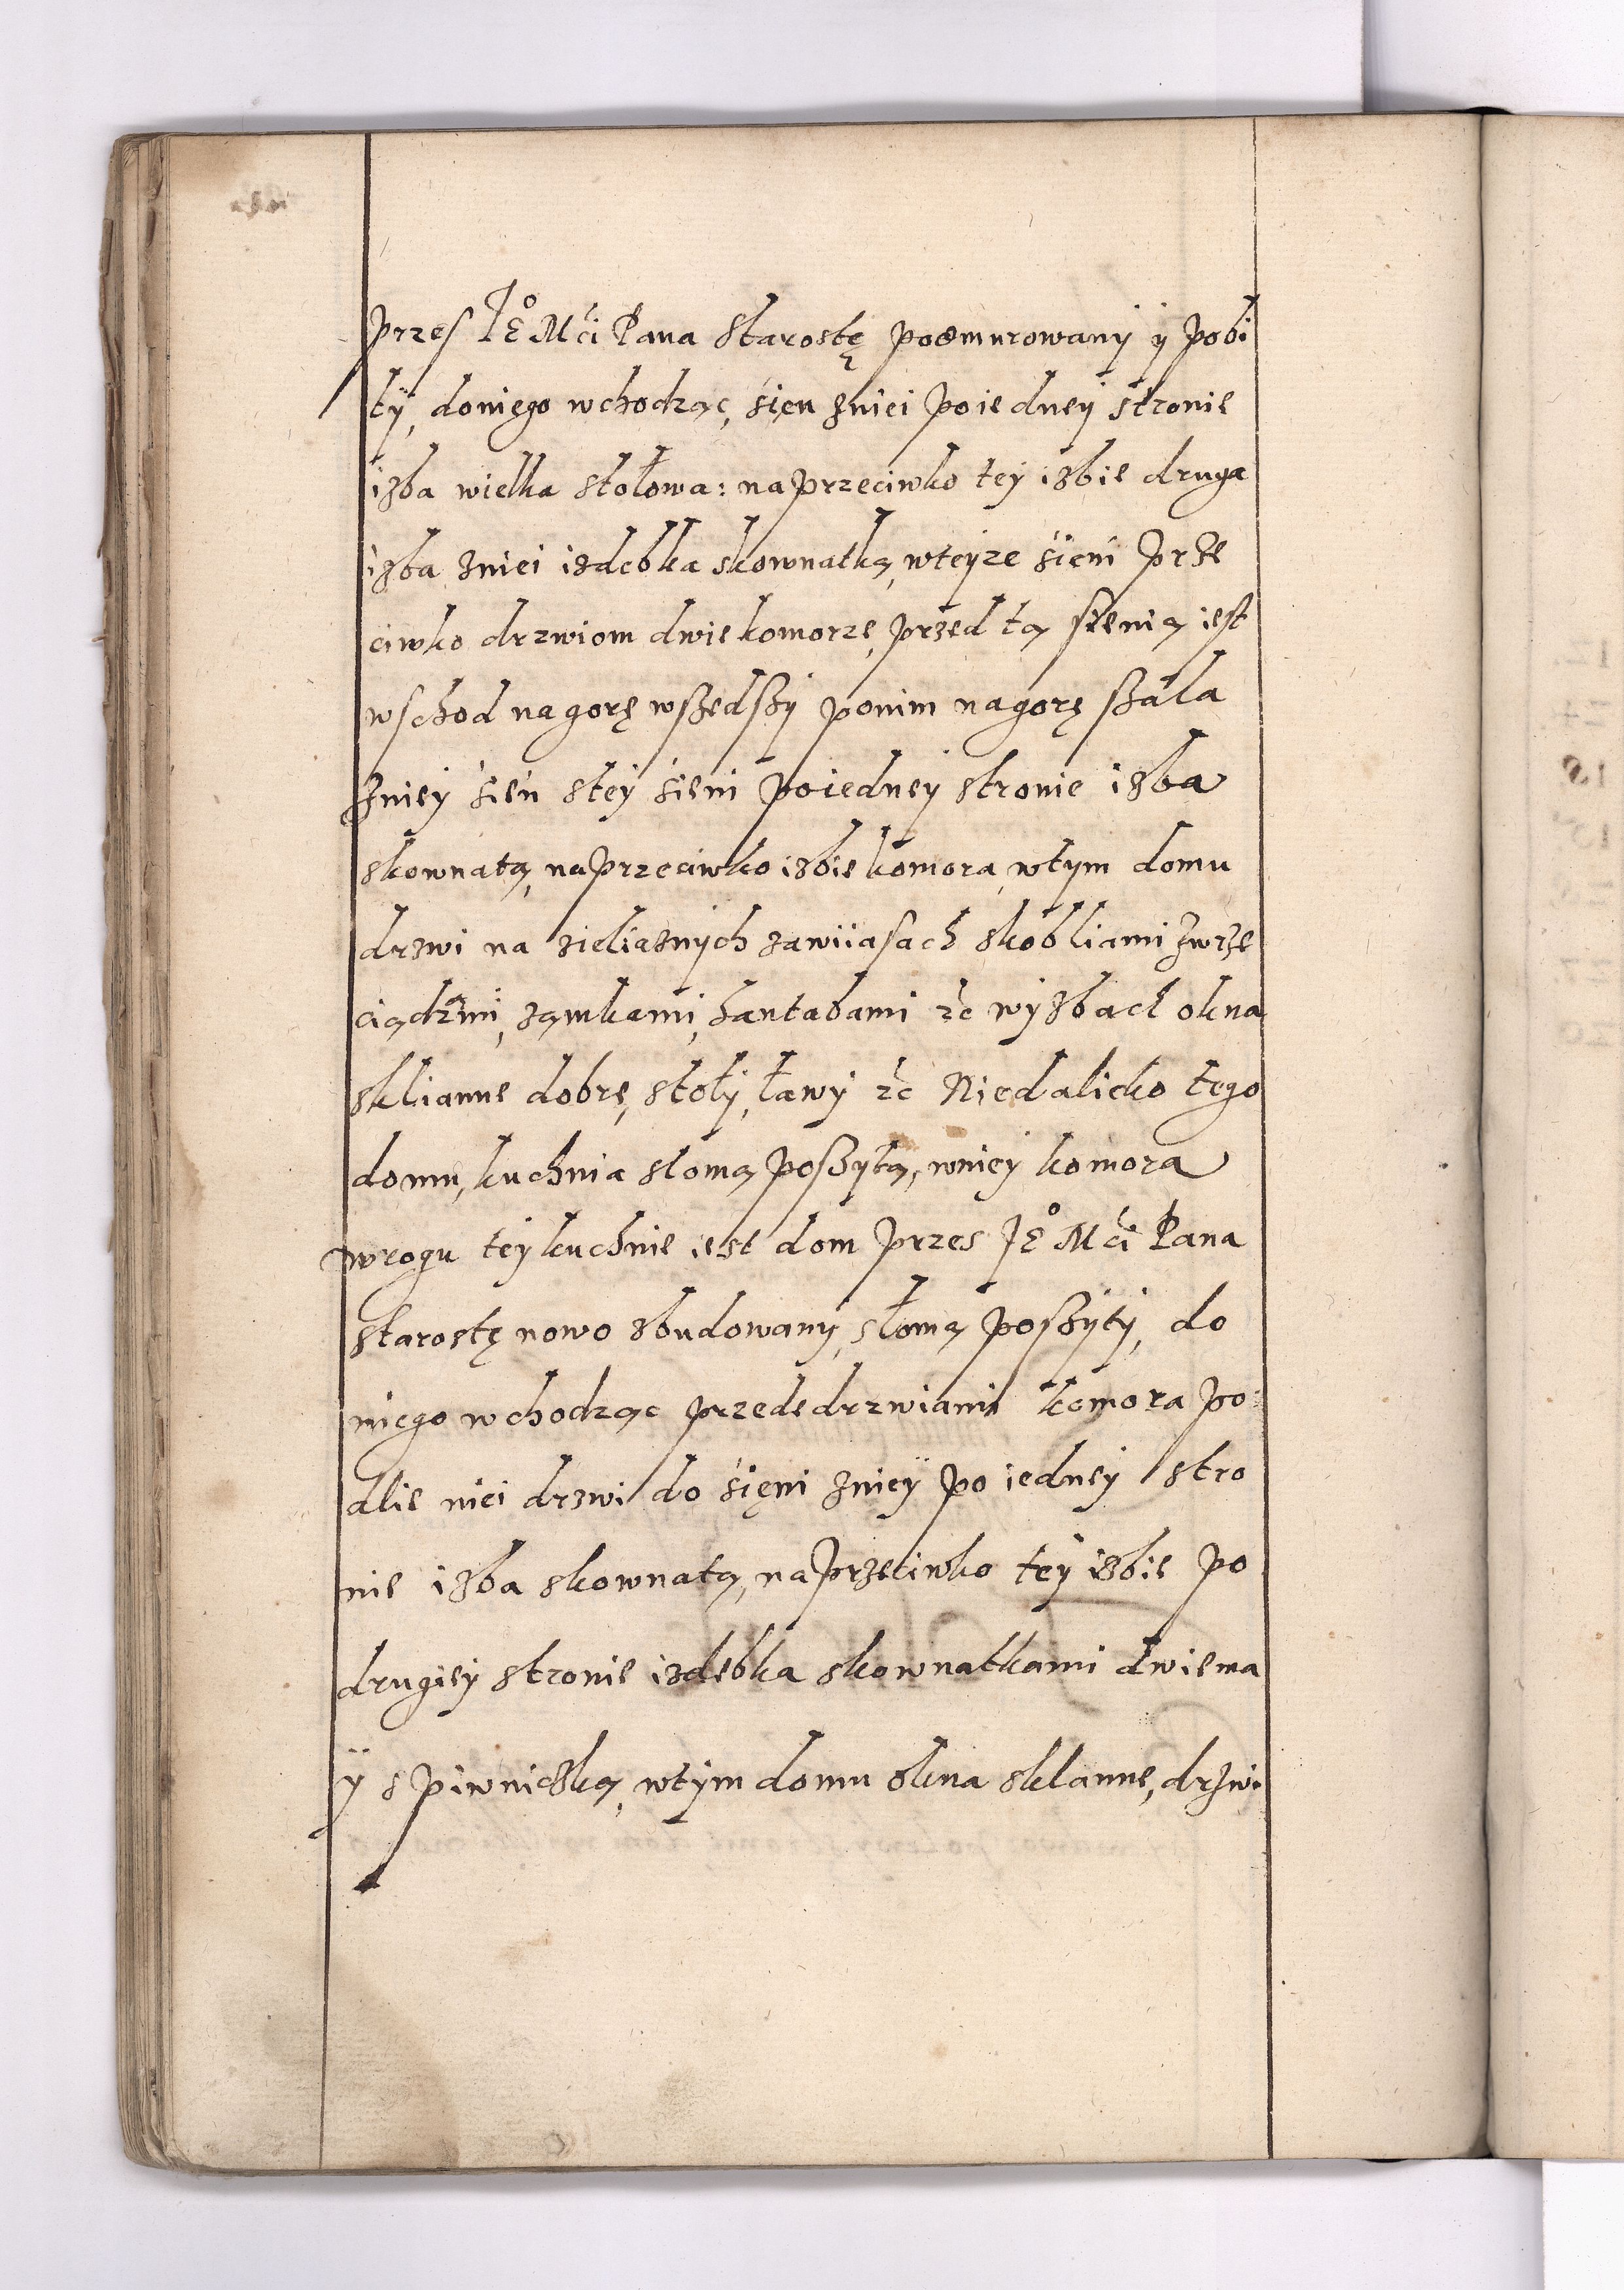 przes JE° Mći Pana Starostę podmurowany y pobi
ty, do niego wchodząc, sień zniei po iedney stronie
izba wielka stołowa: naprzeciwko tey izbie druga
izba zniei izdebka skownatką, wteyze sieni prze
ciwko drzwiom dwie komorze, przed tą sienią iest
wschod nagorę wszedszy ponim nagorę szala
zniey sień stey sieni poiedney stronie izba
skownatą, naprzeciwko izbie komora, wtym domu
drzwi na zieliaznych zawiiasach skobliami zwrze
ciądzmi, zamkami, hantabami &c wyzbach okna
sklianne dobre, stoły, ławy &c Niedalieko tego
domu, kuchnia słomą poszyta, wniey komora
wrogu tey kuchnie iest dom przes JE° Mći Pana
starostę nowo zbudowany, słomą poszyty, do
niego wchodząc przede drzwiami komora po
dlie niei drzwi do sieni zniey po iedney stro
nie izba skownatą, naprzeciwko tey izbie po
drugiey stronie izdebka skownatkami dwiema
ÿ spiwniczką, wtym domu okna sklanne, drzwi